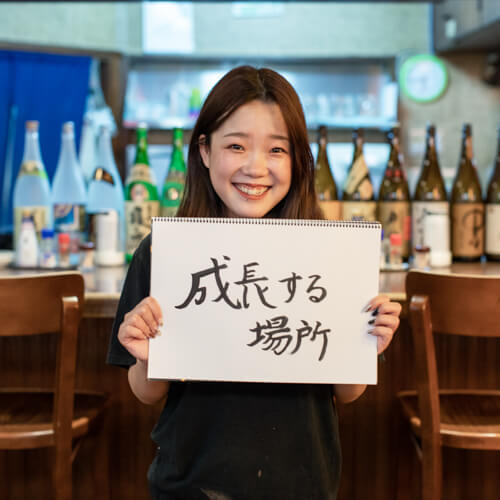 成長する
場所